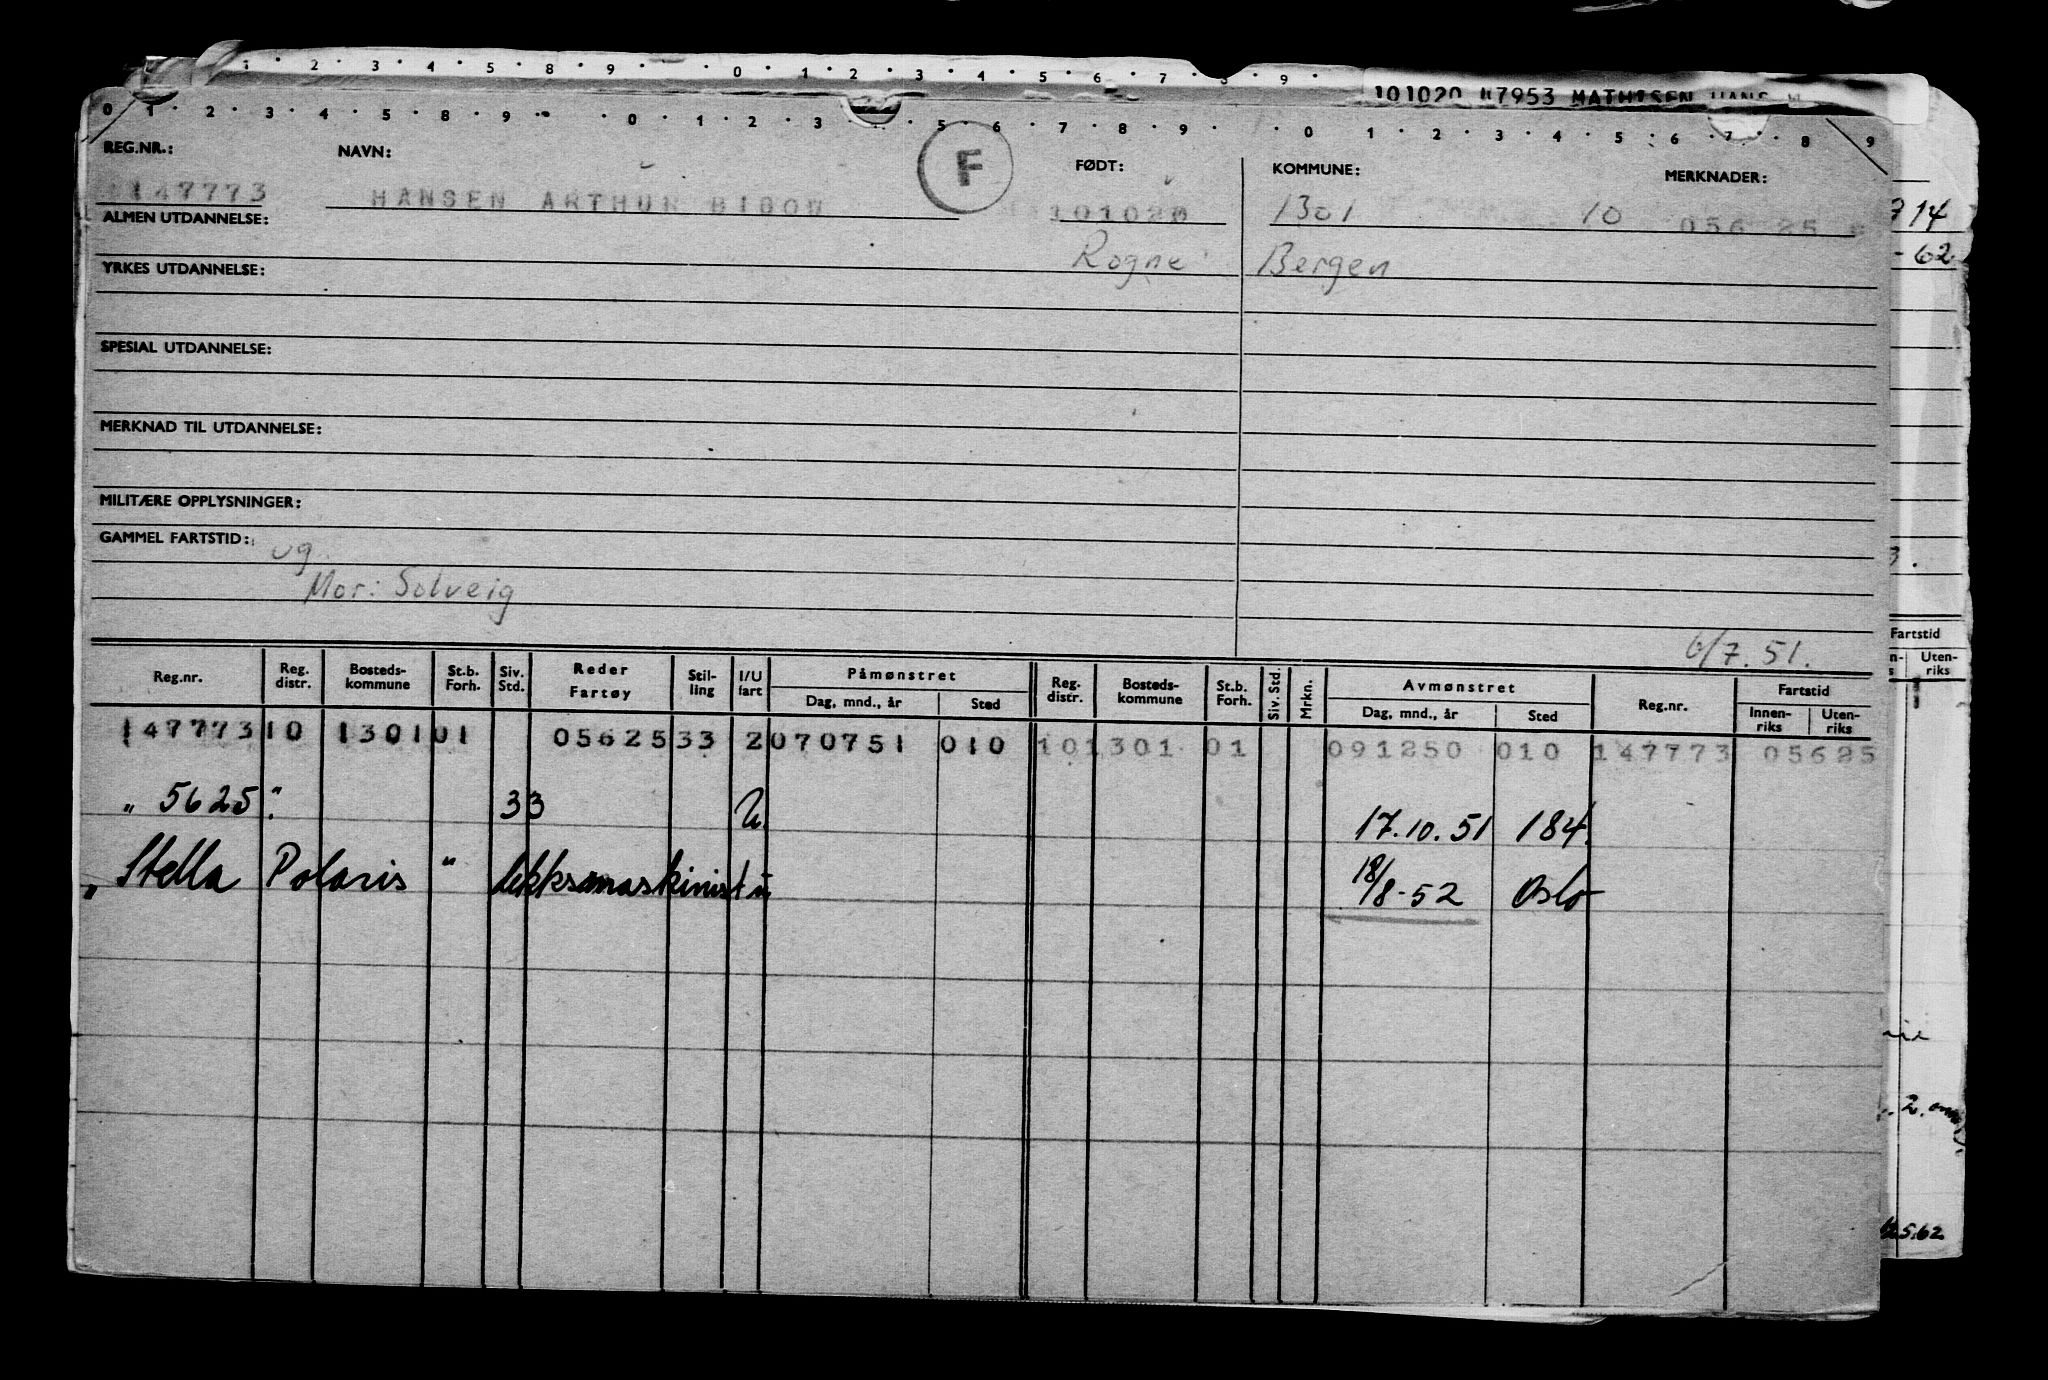 1 · 2 · 3 · 4 · 5 · 8 · 9 · · 0 · 1 · 2 · 3 · 4 · 5 · 6 · 7 · 8 · 9 ·
101020 47953 MATHISEN HANS
0 · 1 · 2 · 3 · 4 · 5 · 8 · 9 · · 0 · 1 · 2 · 3 · · 5 · 6 · 7 · 8 · 9 · · 0 · 1 · 2 · 3 · 4 · 5 · 6 · 7 · 8 · 9
REG.NR.: NAVN: F FØDT: KOMMUNE: MERKNADER:
147773 HANSEN ARTHUR 101020 1301 10 05625
ALMEN UTDANNELSE:
Rogne Bergen
YRKES UTDANNELSE:
SPESIAL UTDANNELSE:
MERKNAD TIL UTDANNELSE:
MILITÆRE OPPLYSNINGER:
GAMMEL FARTSTID: ug
Mor: Solveig
6/7.51.
Reg.nr. Reg. distr. Bosteds-kommune St.b. Forh. Siv. Std. Reder Fartøy Stil-ling I/U fart Påmønstret Dag, mnd., år Sted Reg. distr. Bosteds-kommune St.b. Forh. Siv. Std. Mrkn. Avmønstret Dag, mnd., år Sted Reg.nr. Fartstid Innen-riks Uten-riks
147773 10 1301 01 05625 33 2 070751 010 10 1301 01 091250 010 147773 05625
" 5625 " 33 U. 17.10.51 184.
" Stella Polaris " dekksmaskinist u 18/8-52 Oslo
714
-62
3.
Fartstid
Uten-riks
2.
5.62